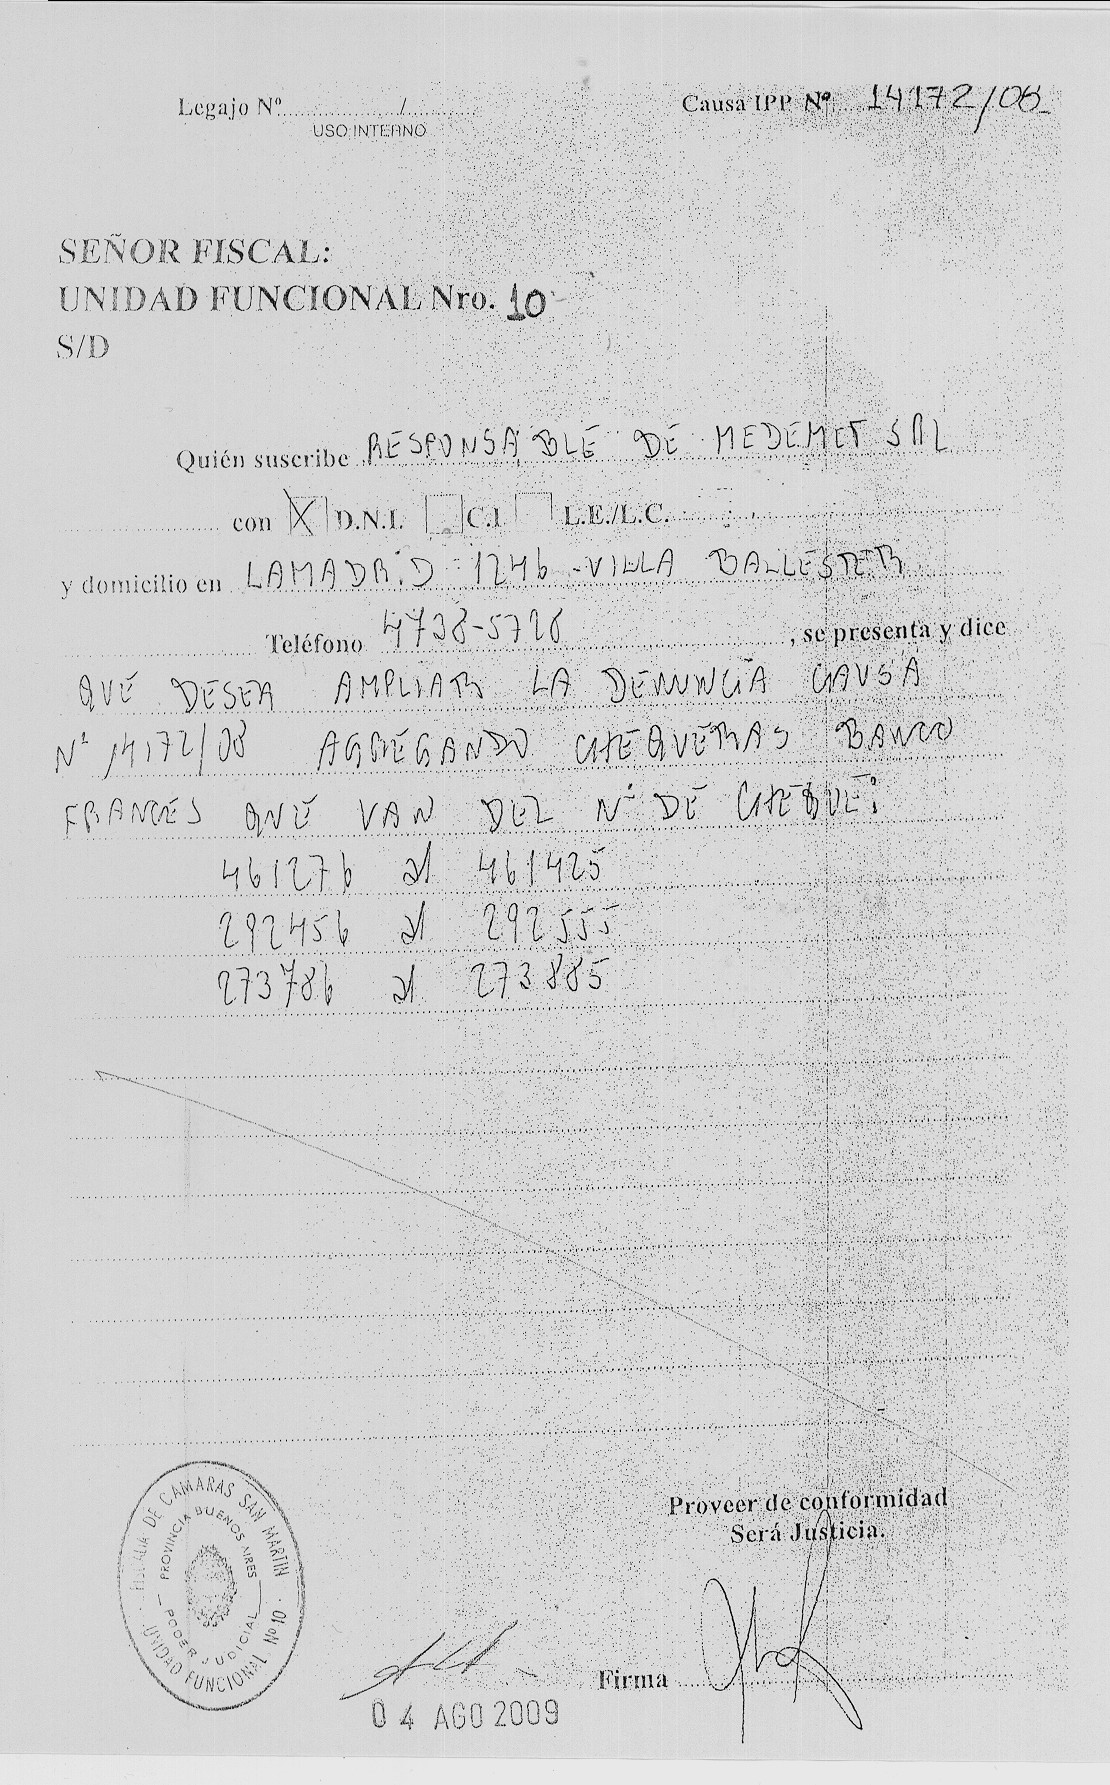 Legajo Nº ............/............
USO INTERNO
Causa IPP Nº 14172/08
SEÑOR FISCAL:
UNIDAD FUNCIONAL Nro. 10
S/D
Quién suscribe RESPONSABLE DE MEDEMET SRL
con X D.N.I. C.I L.E./L.C.
y domicilio en LAMADRID 1246 - VILLA BALLESTER
Teléfono 4738-5728, se presenta y dice
QUE DESEA AMPLIAR LA DENUNCIA CAUSA
Nº 14172/08 AGREGANDO CHEQUERAS BANCO
FRANCES QUE VAN DEL Nº DE CHEQUE:
461276 al 461425
292456 al 292555
273786 al 273885
Proveer de conformidad
Será Justicia.
FISCALIA DE CAMARAS SAN MARTIN
PROVINCIA BUENOS AIRES
PODER JUDICIAL
UNIDAD FUNCIONAL Nº 10
Firma
04 AGO 2009